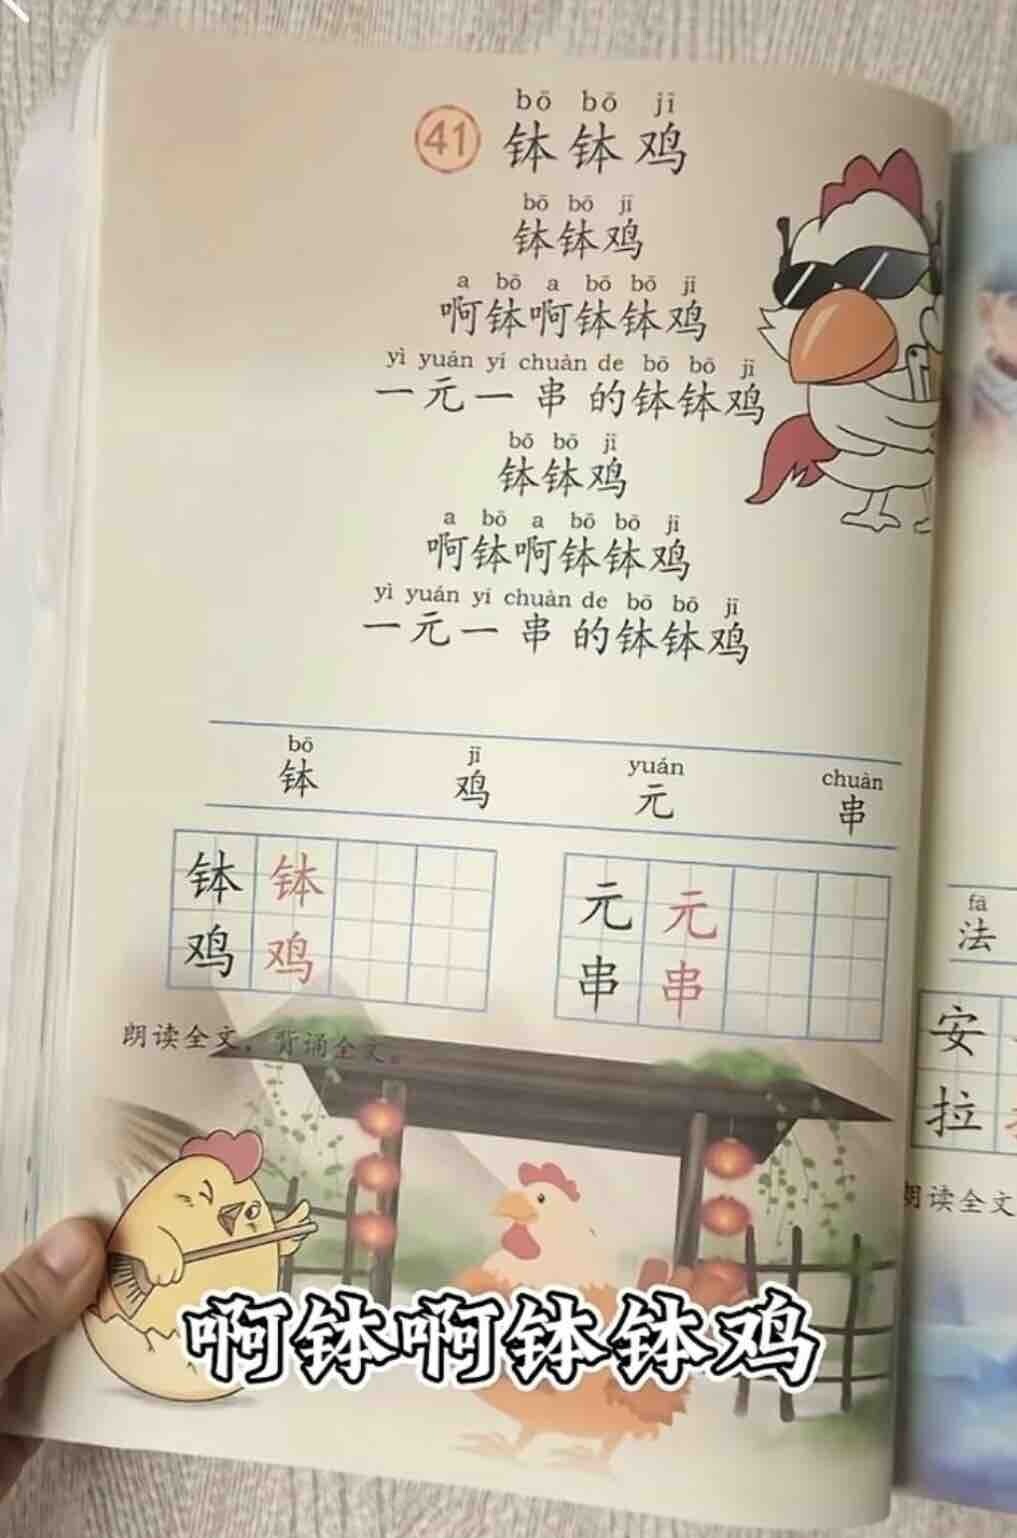 bō bō jī
41 钵钵鸡
bō bō jī
钵钵鸡
a bō a bō bō jī
啊钵啊钵钵鸡
yì yuán yí chuàn de bō bō jī
一元一串的钵钵鸡
bō bō jī
钵钵鸡
a bō a bō bō jī
啊钵啊钵钵鸡
yì yuán yí chuàn de bō bō jī
一元一串的钵钵鸡
bō jī yuán chuàn
钵 鸡 元 串
钵 钵 元 元
鸡 鸡 串 串
朗读全文，背诵全文。
啊钵啊钵钵鸡
fǎ
法
安
拉
朗读全文